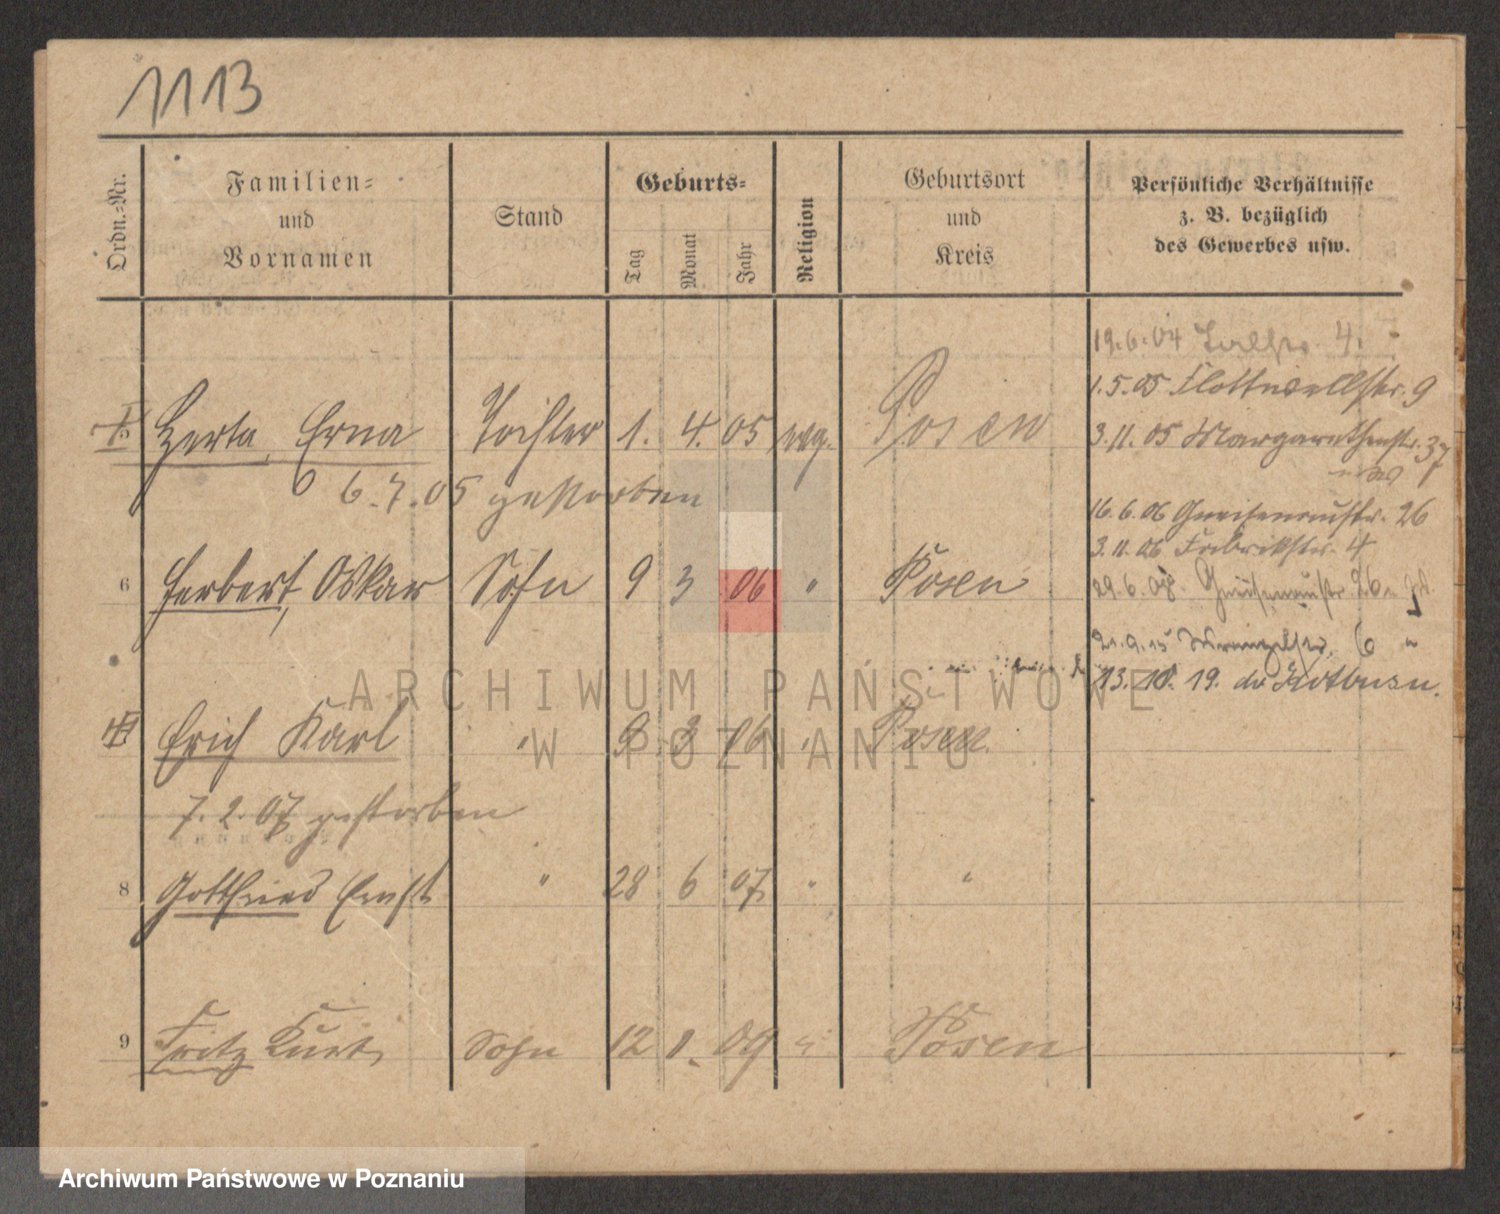 1113
Ordn.=Nr.
Familien=
und
Vornamen
Stand
Geburts=
Tag
Monat
Jahr
Religion
Geburtsort
und
Kreis
Persönliche Verhältnisse
z. B. bezüglich
des Gewerbes usw.
19.6.04 4.
1.5.05 Flottwellstr. 9
5 Herta, Erna Tochter 1. 4. 05 evg. Posen
3.11.05 Margarethenstr. 37
6.7.05 gestorben
16.6.06 Gneisenaustr. 26
3.11.06 Fabrikstr. 4
6 Herbert, Oskar Sohn 9 3 06 " Posen
29.6.08. Gneisenaustr. 26
21.9.15 Wrangelstr. 6 "
13. 10. 19.
7 Erich Karl " 9 3 06 " Posen
7.2.07 gestorben
8 Gottfried Ernst " 28 6 07 " "
9 Fritz Kurt Sohn 12 8. 09 " Posen
ARCHIWUM PAŃSTWOWE
W POZNANIU
Archiwum Państwowe w Poznaniu